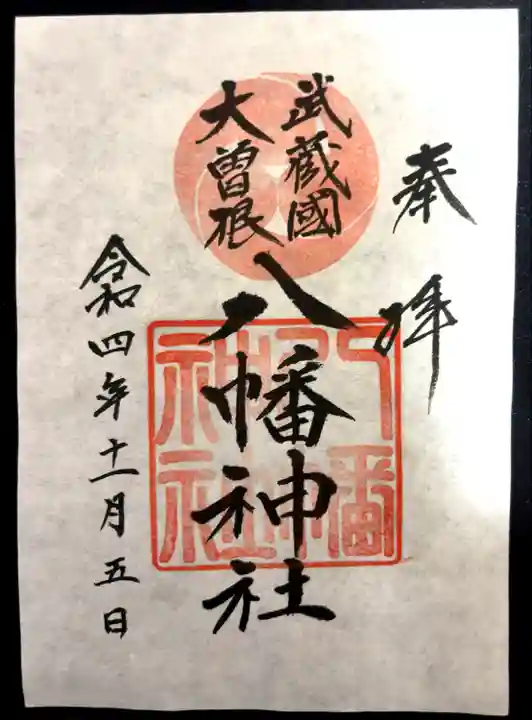 奉拝
武蔵國
大曽根
八幡神社
八幡
神社
令和四年十一月五日